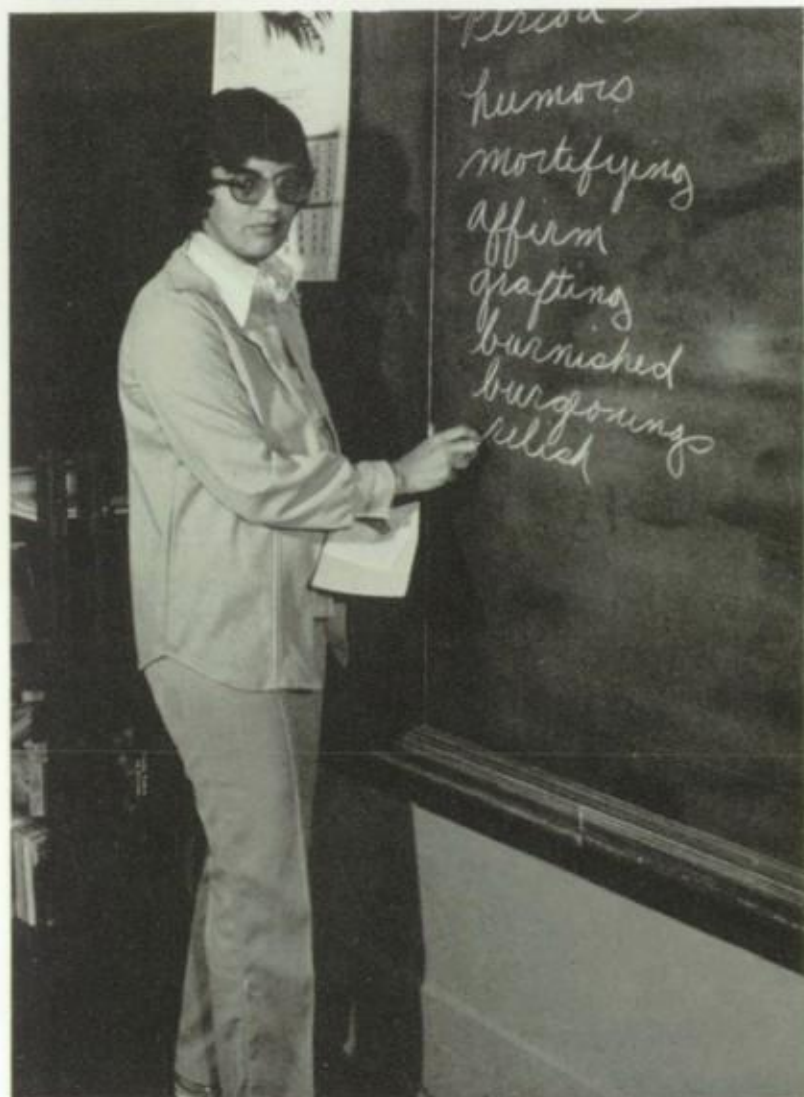 Period
humors
mortifying
affirm
grafting
burnished
burgeonings
relish